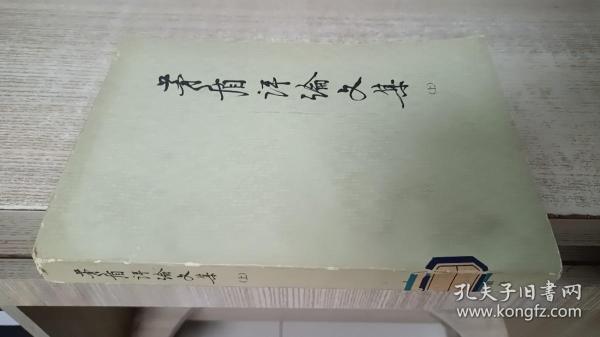 茅盾评论文集（上）
茅盾评论文集（上）
孔夫子旧书网
www.kongfz.com